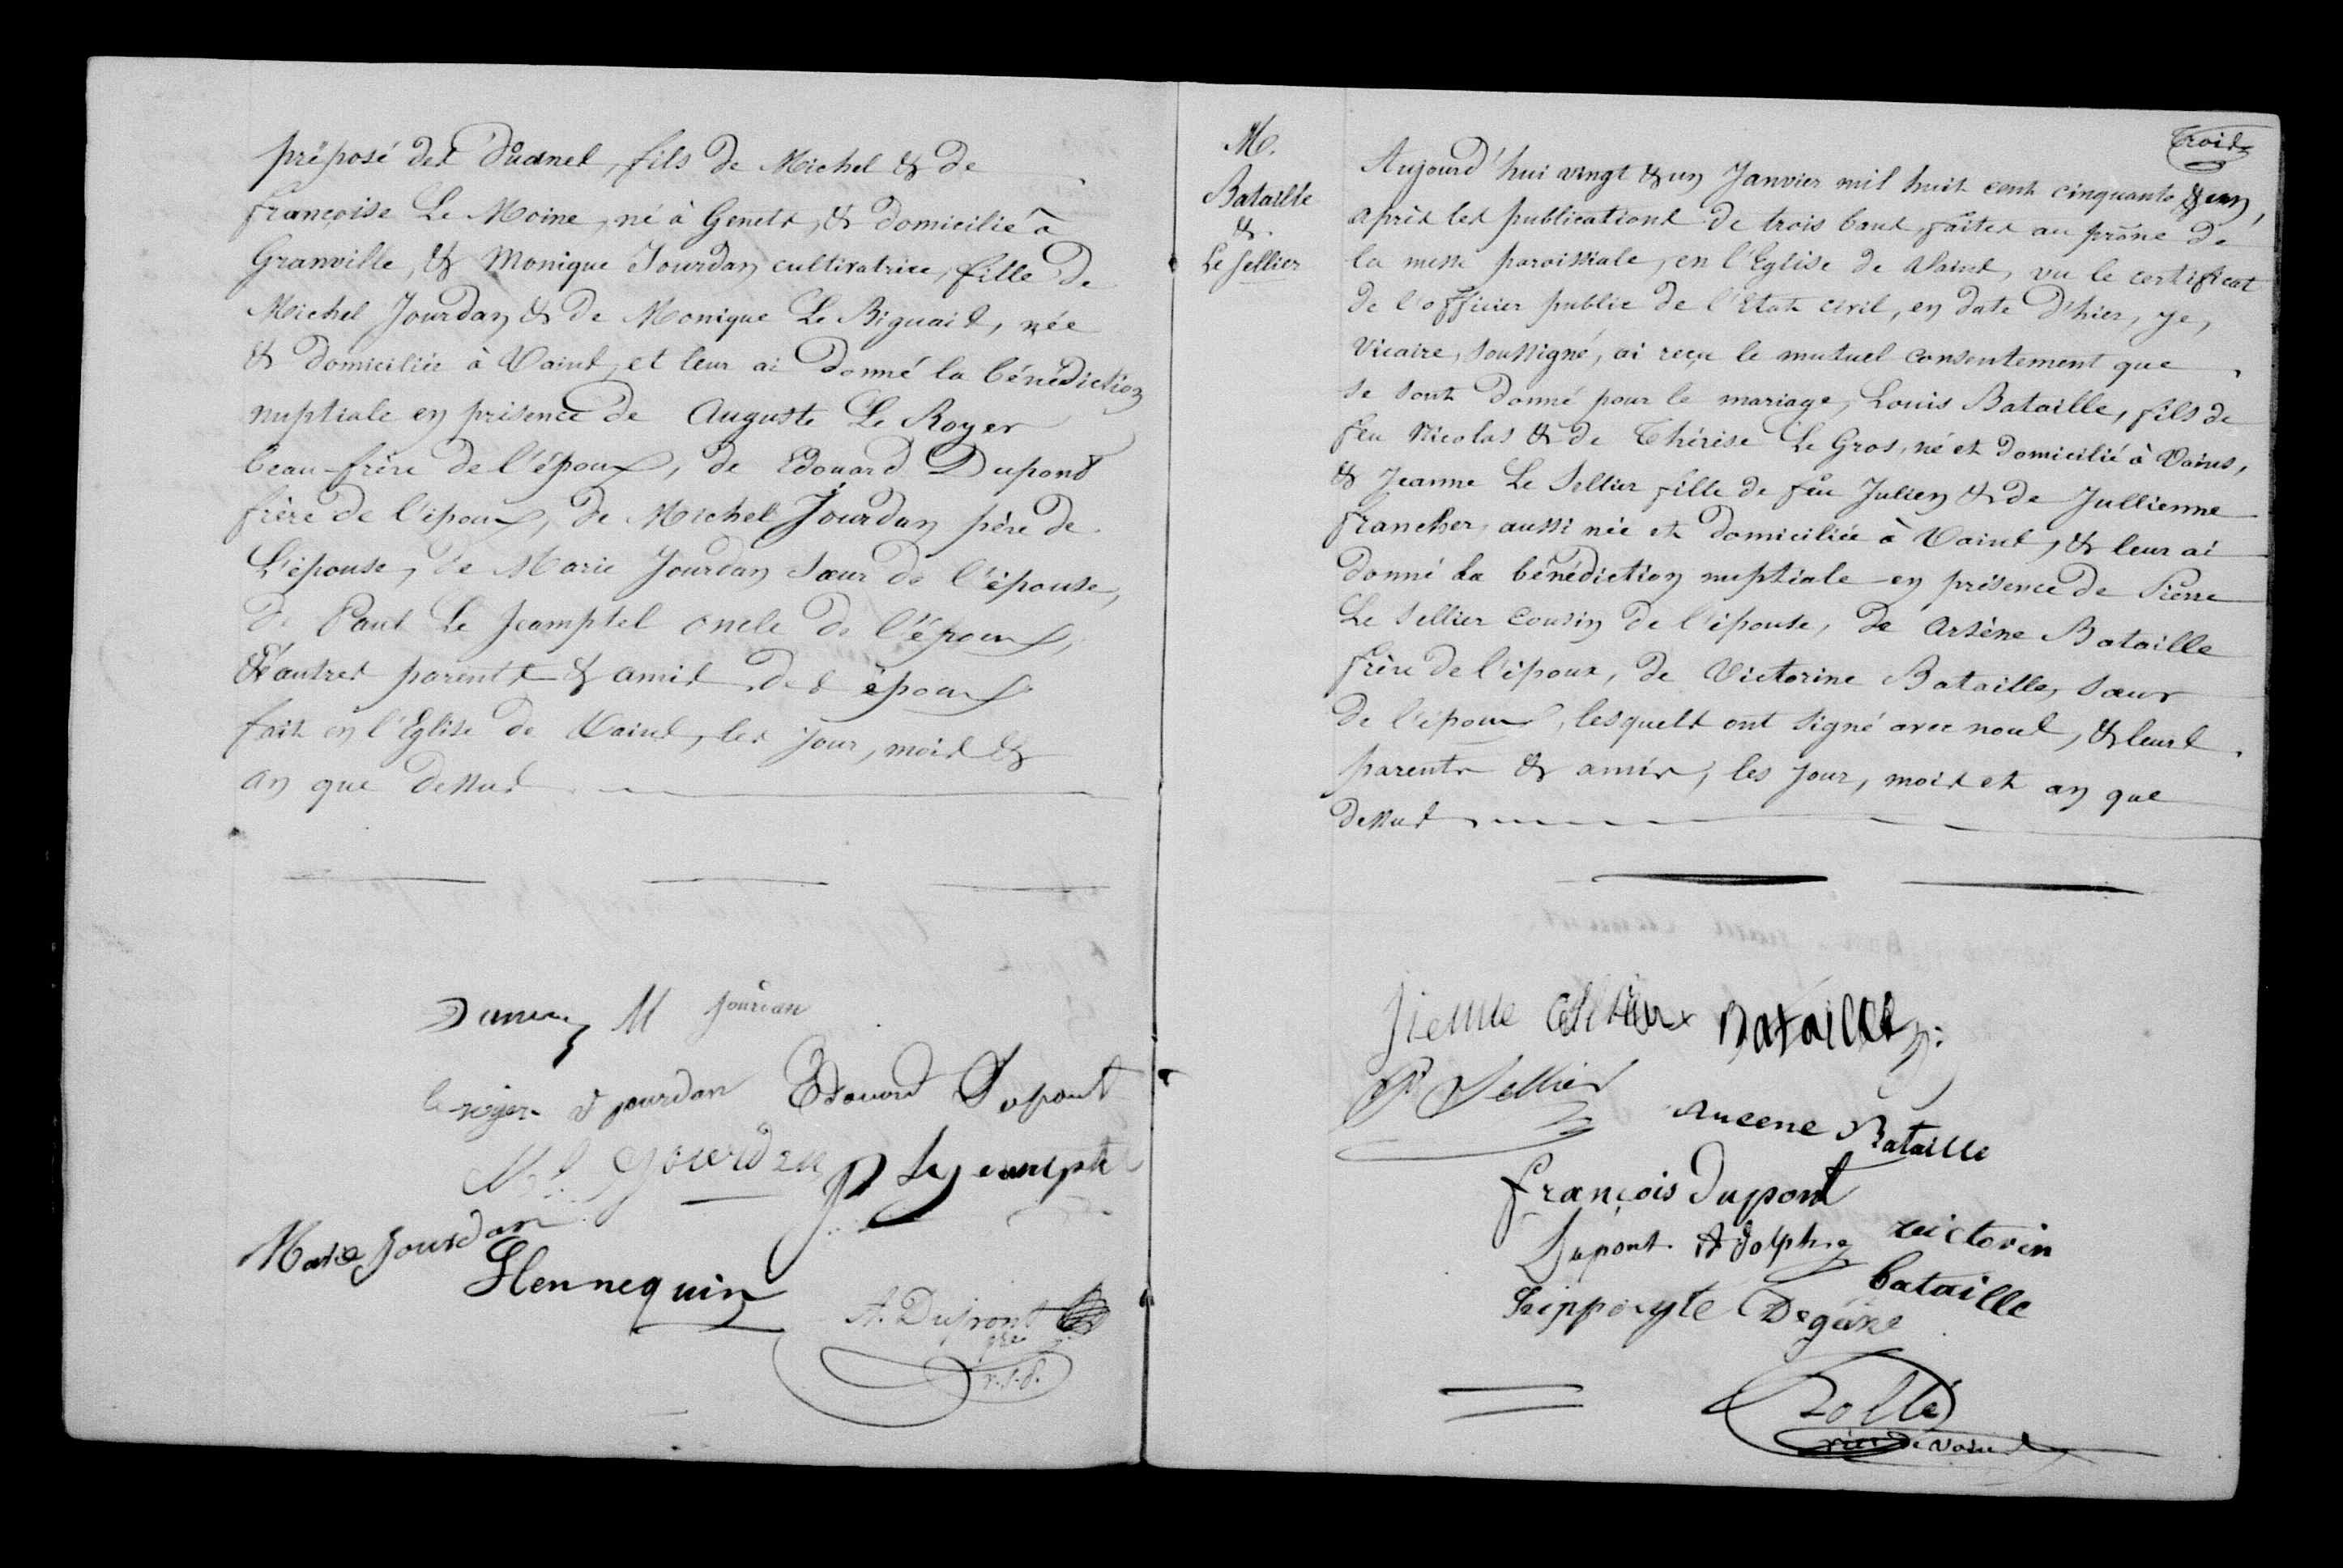 préposé des Douanes, fils de Michel & de
françoise Le Moine, né à Genets, & domicilié à
Granville, & Monique Jourdan cultivatrice, fille de
Michel Jourdan & de Monique Le Biguais, née
& domiciliée à Vains, et leur ai donné la bénédiction
nuptiale en présence de Auguste Le Royer
beau-frère de l'époux, de Edouard Dupont
frère de l'époux, de Michel Jourdan père de
L'épouse, de Marie Jourdan sœur de l'épouse,
de Paul Le Jcamptel oncle de l'époux,
& d'autres parents & amis des époux
fait en l'Eglise de Vains, les jour, mois &
an que dessus
M Jourdan
le royer Jourdan Edouard Dupont
Jourdan
Marie Jourdan
Hennequin
A. Dupront
v.s.d.
Trois
M.
Bataille
&
Le Sellier
Aujourd'hui vingt & un Janvier mil huit cent cinquante & un,
après les publications de trois bans faites au prône de
la messe paroissiale, en l'Eglise de Vains, vu le certificat
de l'officier public de l'Etat civil, en date d'hier, je,
Vicaire, soussigné, ai reçu le mutuel consentement que
se sont donné pour le mariage, Louis Bataille, fils de
feu Nicolas & de Thérèse Le Gros, né et domicilié à Vains,
& Jeanne Le Sellier fille de feu Julien & de Jullienne
francher, aussi née et domiciliée à Vains, & leur ai
donné la bénédiction nuptiale en présence de Pierre
Le Sellier cousin de l'épouse, de Arsène Bataille
frère de l'époux, de Victorine Bataille, sœur
de l'époux, lesquels ont signé avec nous, & leurs
parents & amis, les jour, mois et an que
dessus
Bataille
P Sellier
Aucene Bataille
françois dupont
Dupont Adolphe victorin
bataille
hippolyte Degune
vic. de Vains